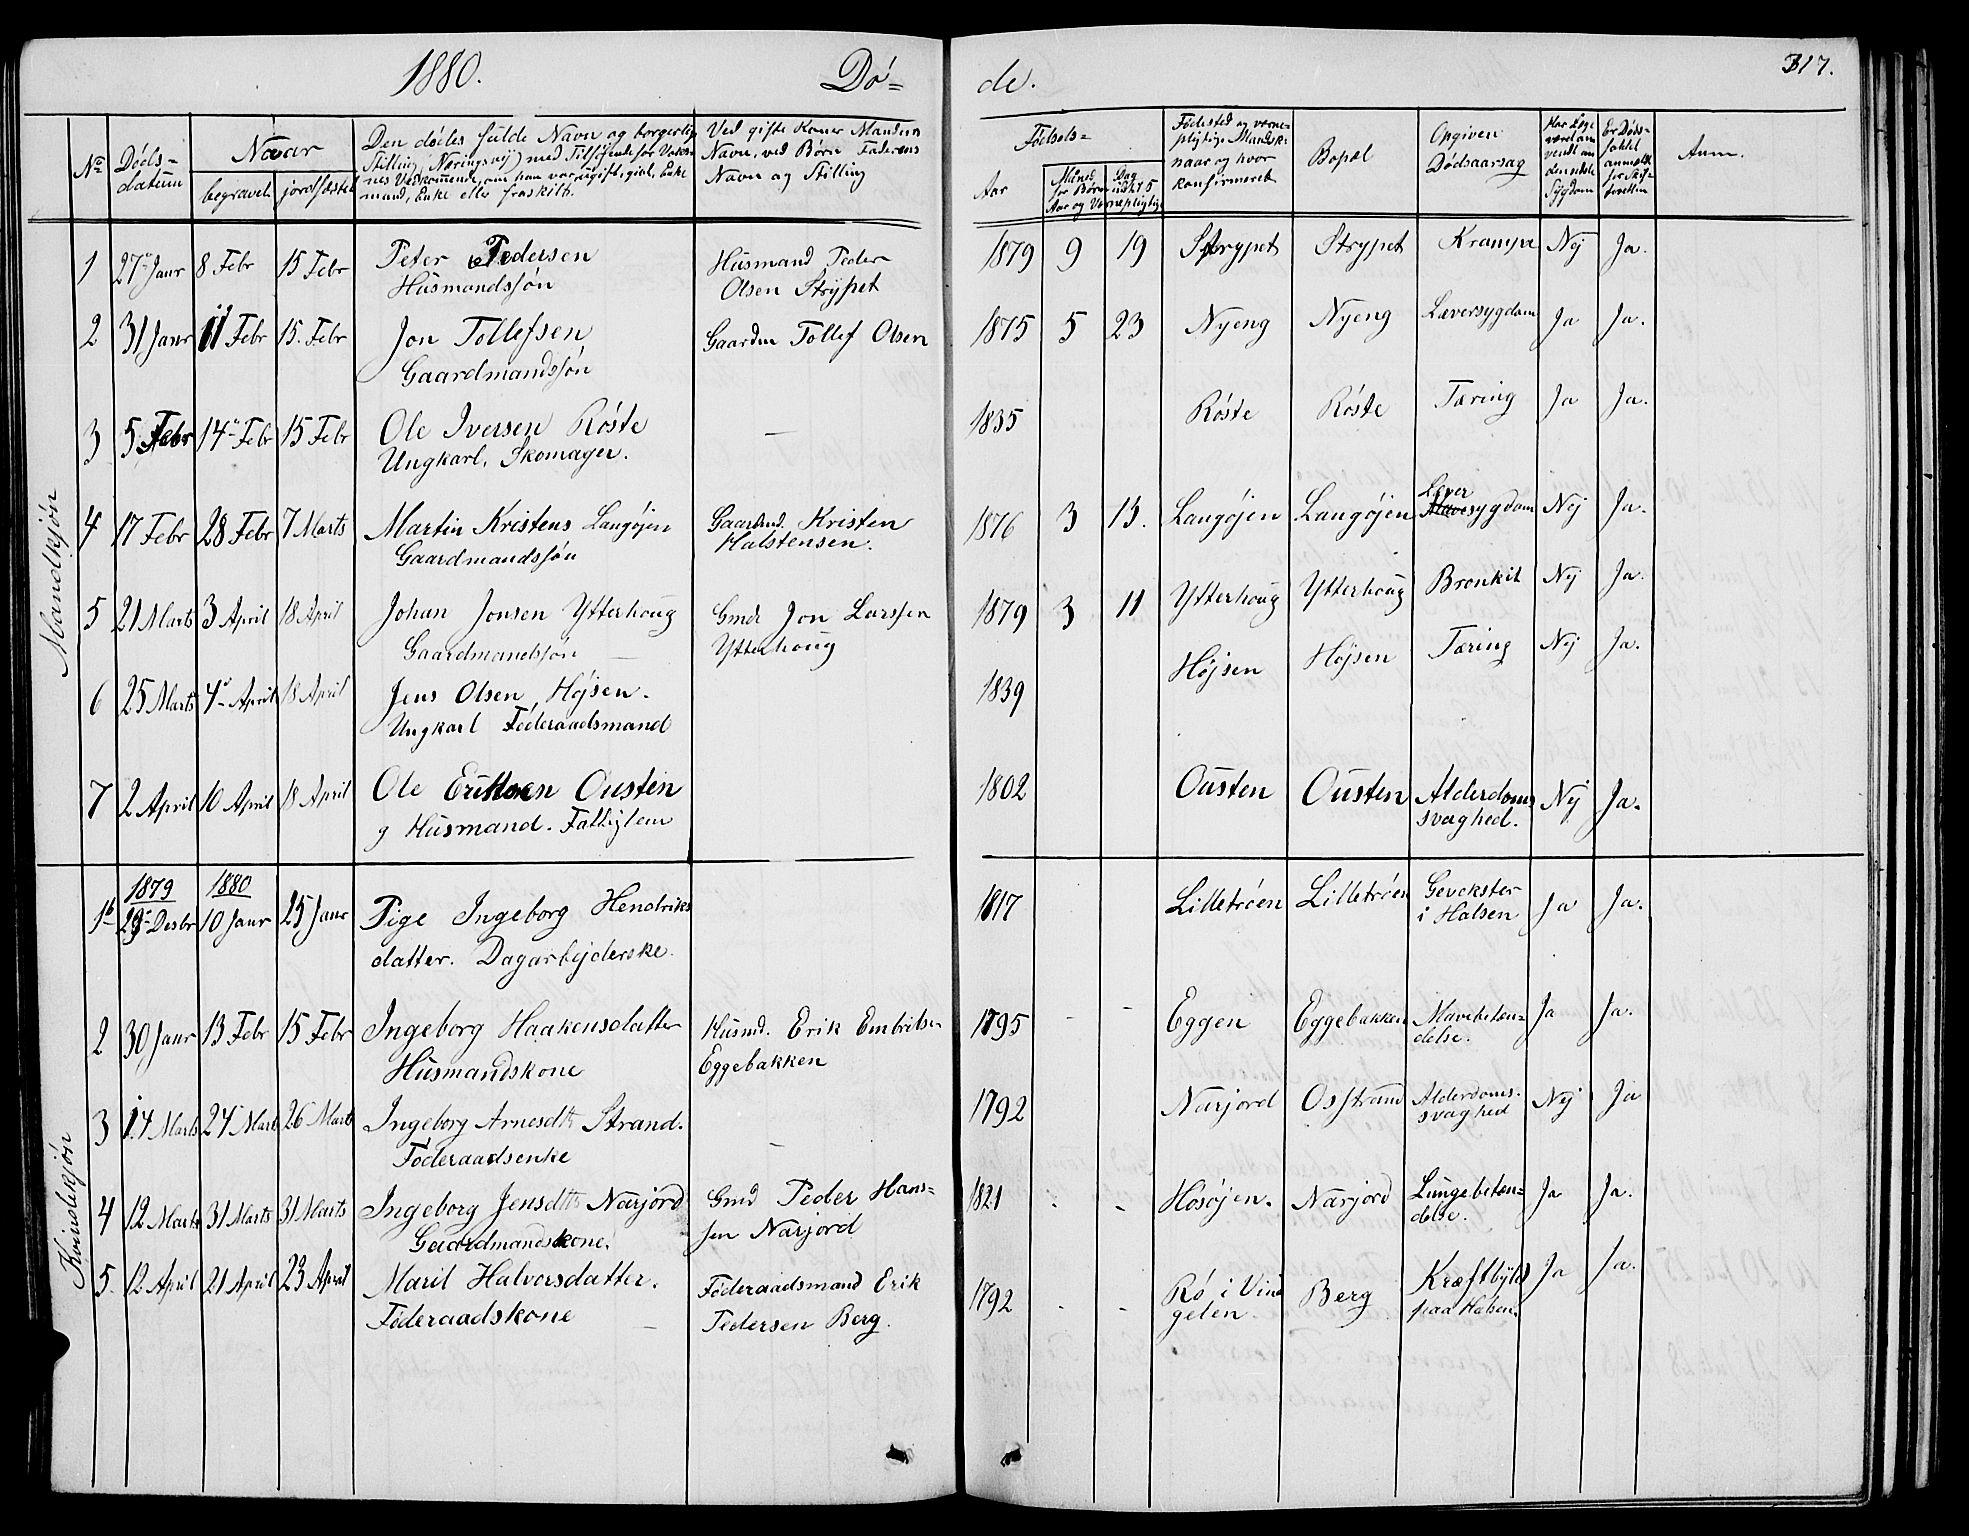 1880. Dø= de. 317.
Nº
Døds=
datum
Naar
begravet jordfæstet
Den dødes fulde Navn og borgerlige
Stilling (Næringsvej) med Tilføjende for Voks-
nes Vedkommende, om han var ugift, givt, Enke
mand, Enke eller fraskilt.
Ved gifte Koner Mandens
Navn, ved Børn Faderens
Navn og Stilling
Fødsels=
Aar
Maned Dag
for Børn indtil 5
Aar og Vernepligtige
Fødested og verne-
pligtige Mandsk.
naar og hvor
konfirmeret
Bopæl
Opgiven
Dødsaarsag
Har Læge
været an
vendt un
den sidste
Sygdom
Er Døds-
faldet
anmeldt
for Skif-
teretten
Anm.
Mandkjøn
1 27 Janr 8 Febr 15 Febr Peter Pedersen Husmand Peder 1879 9 19 Strypet Strypet Krampe Nej Ja.
Husmandssøn Olsen Strypet
2 31 Janr 11 Febr 15. Febr Jon Tollefsen Gaardm Tollef Olsen 1875 5 23 Nyeng Nyeng Læversygdom Ja Ja.
Gaardmandssøn
3 5 Febr 14 Febr 15 Febr Ole Iversen Røste — 1835 Røste Røste Tæring Ja Ja.
Ungkarl, Skomager.
4 17 Febr 28 Febr 7 Marts Martin Kristens Langøjen Gaardmd. Kristen 1876 3 13. Langøjen Langøjen Lever sygdom Nej Ja.
Gaardmandssøn Halstensen.
5 21 Marts 3 April 18 April Johan Jonsen Ytterhoug Gmd Jon Larssen 1879 3 11 Ytterhoug Ytterhoug Bronkit Nej Ja.
Gaardmandssøn — Ytterhoug
6 25 Marts 4 April 18 April Jens Olsen Højsen. 1839 Højsen Højsen Tæring Nej Ja.
Ungkarl Føderaadsmand
7 2 April 10 April 18 April Ole Eriksen Ousten 1802 Ousten Ousten Alderdoms Nej Ja.
g Husmand. Fattiglem svaghed.
Kvindekjøn
1879 1880
1 Desbr 10 Janr 25 Janr Pige Ingeborg Hendriks 1817 Lilletrøen Lilletrøen Gevekster Ja Ja.
datter. Dagarbejderske. i Halsen
2 30 Janr 13 Febr 15 Febr Ingeborg Haakensdatter Husmd. Erik Embritsen 1795 - - Eggen Eggebakken Mavebetæn= Ja Ja.
Husmandskone Eggebakken delse.
3 14 Marts 24 Marts 26 Marts Ingeborg Arnesdtr Strand. — 1792 Narjord Osstrand Alderdoms- Nej Ja
Føderaadsenke svaghed
4 12 Marts 31 Marts 31 Marts Ingeborg Jensdtr Narjord Gmd Peder Hans= 1821 - - Hosøjen. Narjord Lungebetæn= Ja Ja.
Gaardmandskone. sen Narjord delse.
5. 12 April 21 April 23 April Marit Halvorsdatter. Føderaadsmand Erik 1792 - - Rø i Vin Berg Kræftbyld Ja Ja.
Føderaadskone — Pedersen Berg. gelen. paa Halsen.